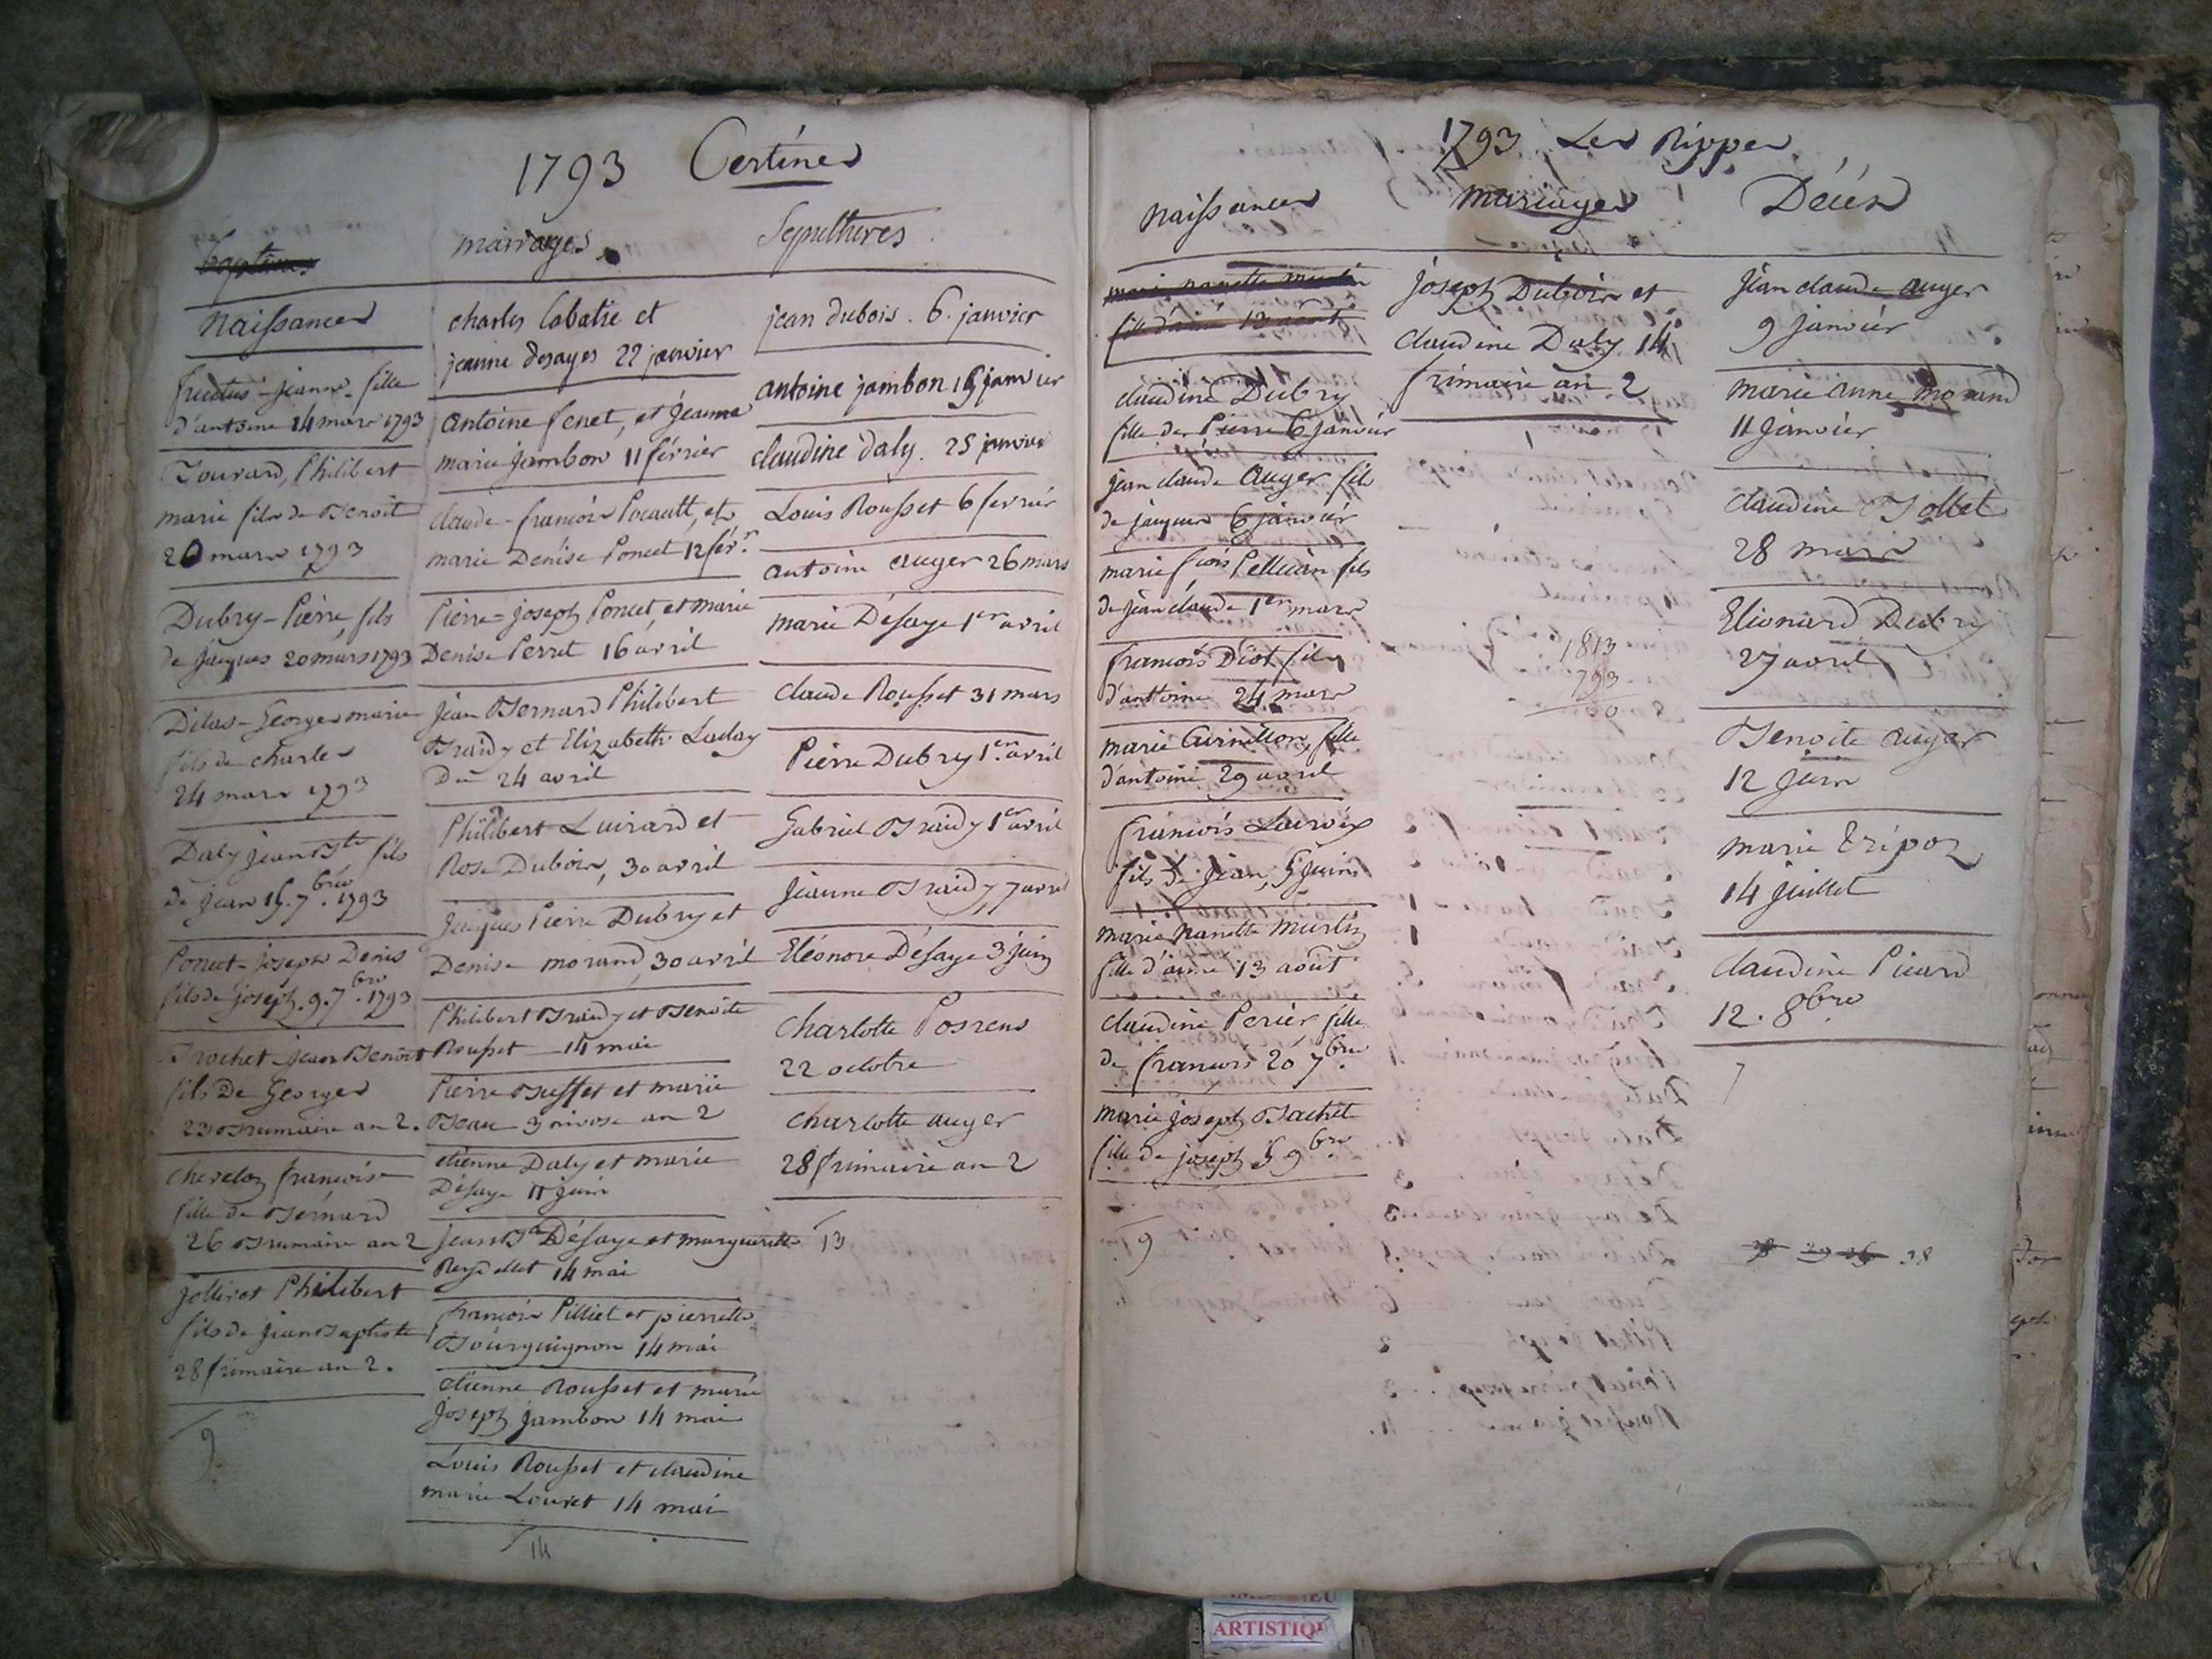 1793 Certines
Baptêmes
mariages
Sepultures
Naissances
fructus - jeanne - fille
d'antoine 14 mars 1793
Touvard, Philibert
marie fils de Benoit
20 mars 1793
Dubry - Pierre, fils
de jacques 20 mars 1793
Dilas - George marie
fils de charles
24 mars 1793
Daly jean Bte, fils
de jean 15. 7bre. 1793
Poncet - joseph Denis
fils de joseph. 9. 7bre. 1793
Brochet jean Benoit
fils de Georges
23 Brumaire an 2.
cheveloz françoise
fille de Bernard
26 Brumaire an 2
jolliret Philibert
fils de jean Baptiste
28 frimaire an 2.
9
charles Cabatie et
jeanne desayes 22 janvier
antoine fenet, et jeanne
marie jambon 11 février
claude - françois Pocault, et
marie Denise Poncet 12 févr.
Pierre = joseph Poncet, et marie
Denise Perret 16 avril
jean Bernard Philibert
Braidy et Elizabeth Laday
Du 24 avril
Philibert Luirard et
Rose Dubois, 30 avril
jacques Pierre Dubry et
Denise morand, 30 avril
Philibert Braidy et Benoite
Rousset - 14 mai
Pierre Buffet et marie
Beau 3 nivose an 2
etienne Daly et marie
Désaye 11 juin
jean Bte Désaye et marguerite
Reydellet 14 mai
françois Pilliet et pierrette
Bourguignon 14 mai
etienne Rousset et marie
joseph jambon 14 mai
Louis Rousset et claudine
marie Louvet 14 mai
14
jean dubois. 6. janvier
antoine jambon 15 janvier
claudine daly. 25 janvier
Louis Rousset 6 fevrier
antoine auger 26 mars
marie Désaye 1er avril
claude Rousset 31 mars
Pierre Dubry 1er avril
Gabriel Braidy 1er avril
jeanne Braidy, 7 avril
Eléonore Désaye 3 juin
Charlotte Posrens
22 octobre
charlotte auger
28 frimaire an 2
13
1793 Les Rippes
Naissances
mariages
Décès
marie nanette martin
fille d'aimé 13 août
claudine Dubry
fille de Pierre 6 janvier
jean claude auger fils
de jacques 6 janvier
marie fçois Pellician fils
de jean claude 1er mars
françois Diot fils
d'anthoine 24 mars
marie Curnillon, fille
d'antoine 29 avril
françois Lacroix
fils de jean, 5 juin
marie nanette martin
fille d'aimé 13 août
claudine Perier fille
de françois 20 7bre
marie joseph Bachet
fille de joseph 5 9bre
9
joseph Dubois et
claudine Daly 14
frimaire an 2
1
1813
793
20
jean claude auger
9 janvier
marie anne morand
11 janvier
claudine Bollet
28 mars
Elionard Dubry
27 avril
Benoite auger
12 juin
marie Tripoz
14 juillet
claudine Picard
12. 8bre
7
28 29 26 38
ARTISTIQ